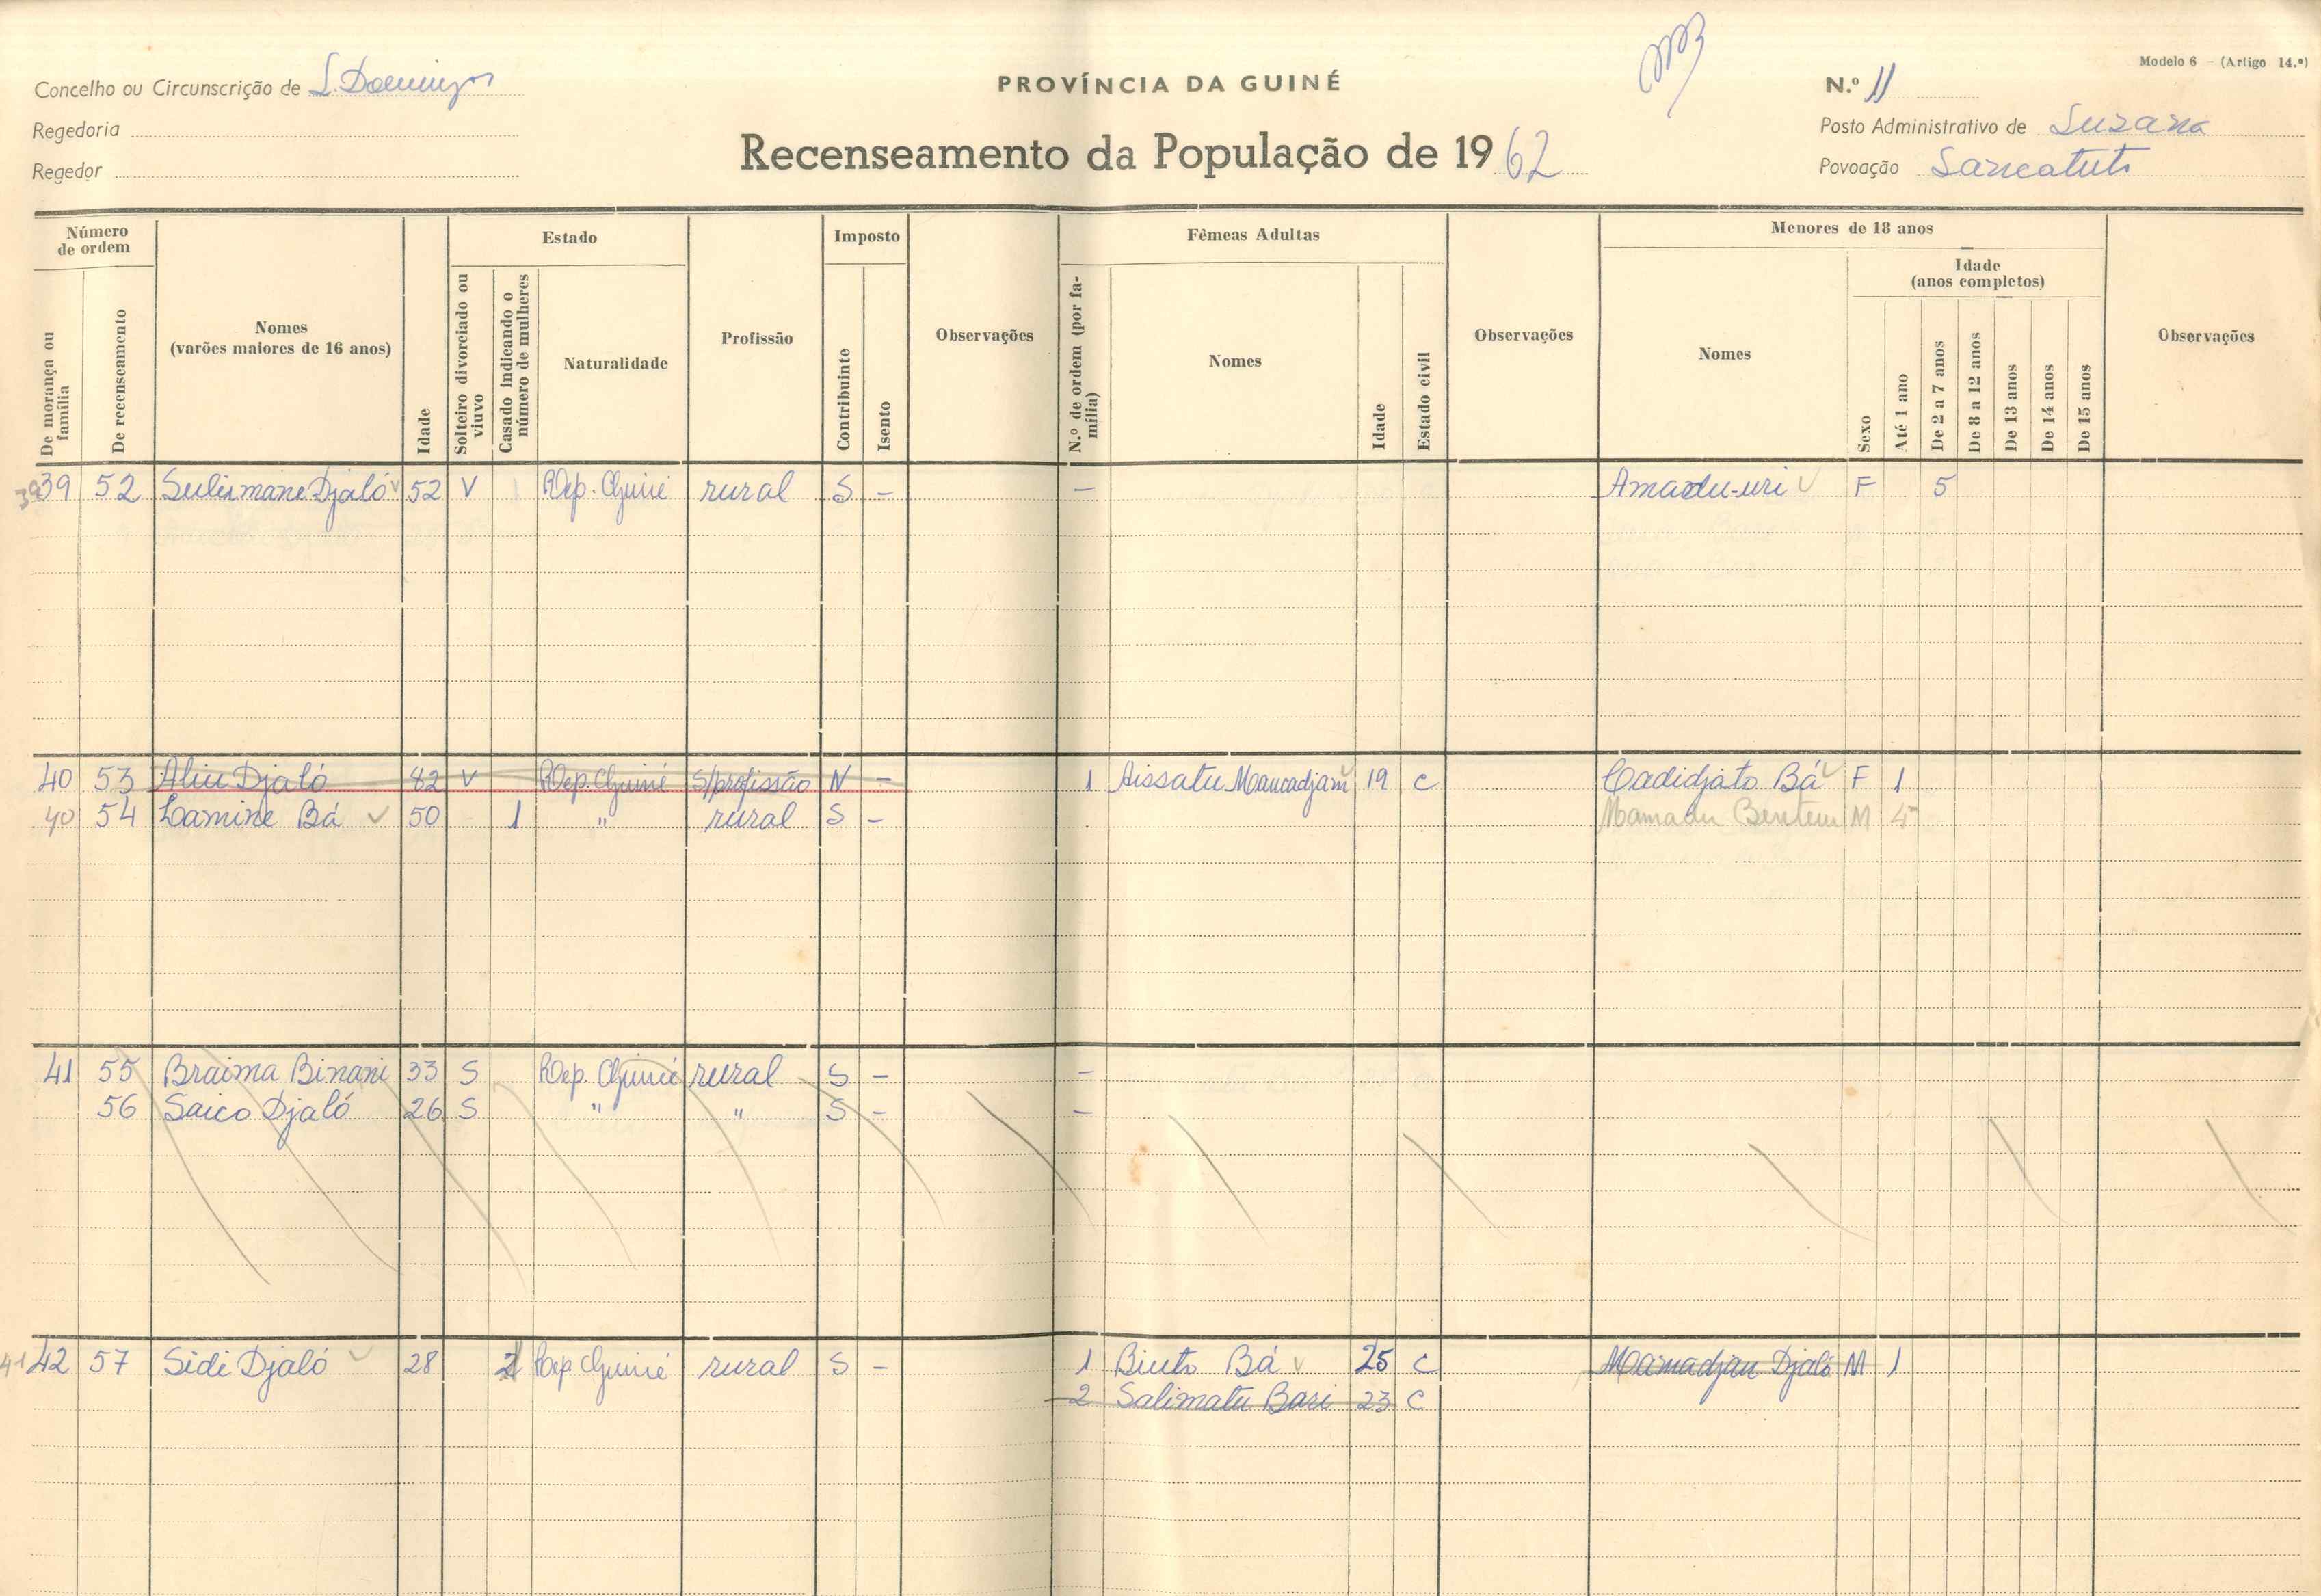 Modelo 6 – (Artigo 14.º)
Concelho ou Circunscrição de S. Domingos
PROVÍNCIA DA GUINÉ
N.º 11
Regedoria
Posto Administrativo de Suzana
Recenseamento da População de 1962
Regedor
Povoação
Número de ordem
De morança ou família
De recenseamento
Nomes
(varões maiores de 16 anos)
Idade
Estado
Solteiro divorciado ou viuvo
Casado indicando o número de mulheres
Naturalidade
Profissão
Imposto
Contribuinte
Isento
Observações
Fêmeas Adultas
N.º de ordem (por família)
Nomes
Idade
Estado civil
Observações
Menores de 18 anos
Nomes
Sexo
Idade
(anos completos)
Até 1 ano
De 2 a 7 anos
De 8 a 12 anos
De 13 anos
De 14 anos
De 15 anos
Observações
39 39 52 Suleimane Djaló 52 V Rep. Guiné rural S – – Amadu-uri F 5
40 53 Aliu Djaló 82 V Rep. Guiné S/profissão N – 1 Aissatu 19 C Cadidjato Bá F 1
40 54 Lamine Bá 50 1 " rural S – Mamadu M
41 55 Braima Binani 33 S Rep. Guiné rural S – –
56 Saico Djaló 26 S " " S – –
41 42 57 Sidi Djaló 28 Rep. Guiné rural S – 1 Biuto Bá 25 C Mamadjan Djaló M 1
2 Salimatu Bari 23 C